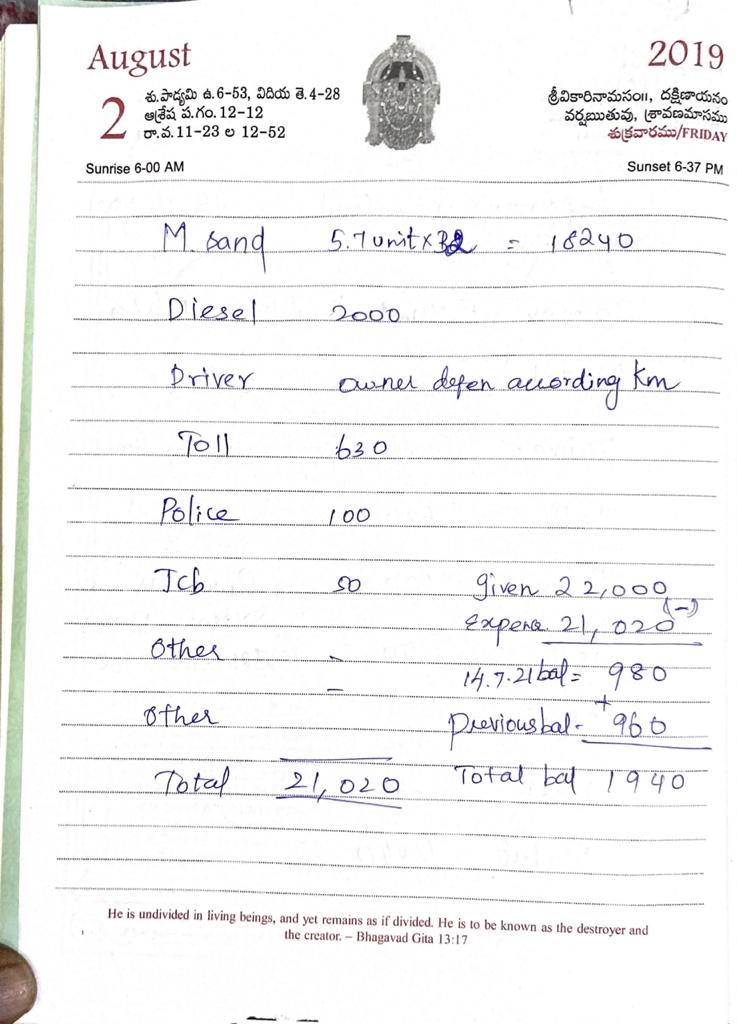 August
2019
2
శు.పాడ్యమి ఉ.6-53, విదియ తె.4-28
ఆశ్రేష ప.గం.12-12
రా.వ.11-23 ల 12-52
శ్రీవికారినామసం॥, దక్షిణాయనం
వర్షఋతువు, శ్రావణమాసము
శుక్రవారము/FRIDAY
Sunrise 6-00 AM
Sunset 6-37 PM
M. sand 5.7 unit x 32 = 18240
Diesel 2000
Driver owner depen according Km
Toll 630
Police 100
Jcb 50 given 22,000
Expens 21,020 (-)
Other -
14.7.21 bal = 980
Other - previous bal - + 960
Total 21,020 Total bal 1940
He is undivided in living beings, and yet remains as if divided. He is to be known as the destroyer and
the creator. – Bhagavad Gita 13:17